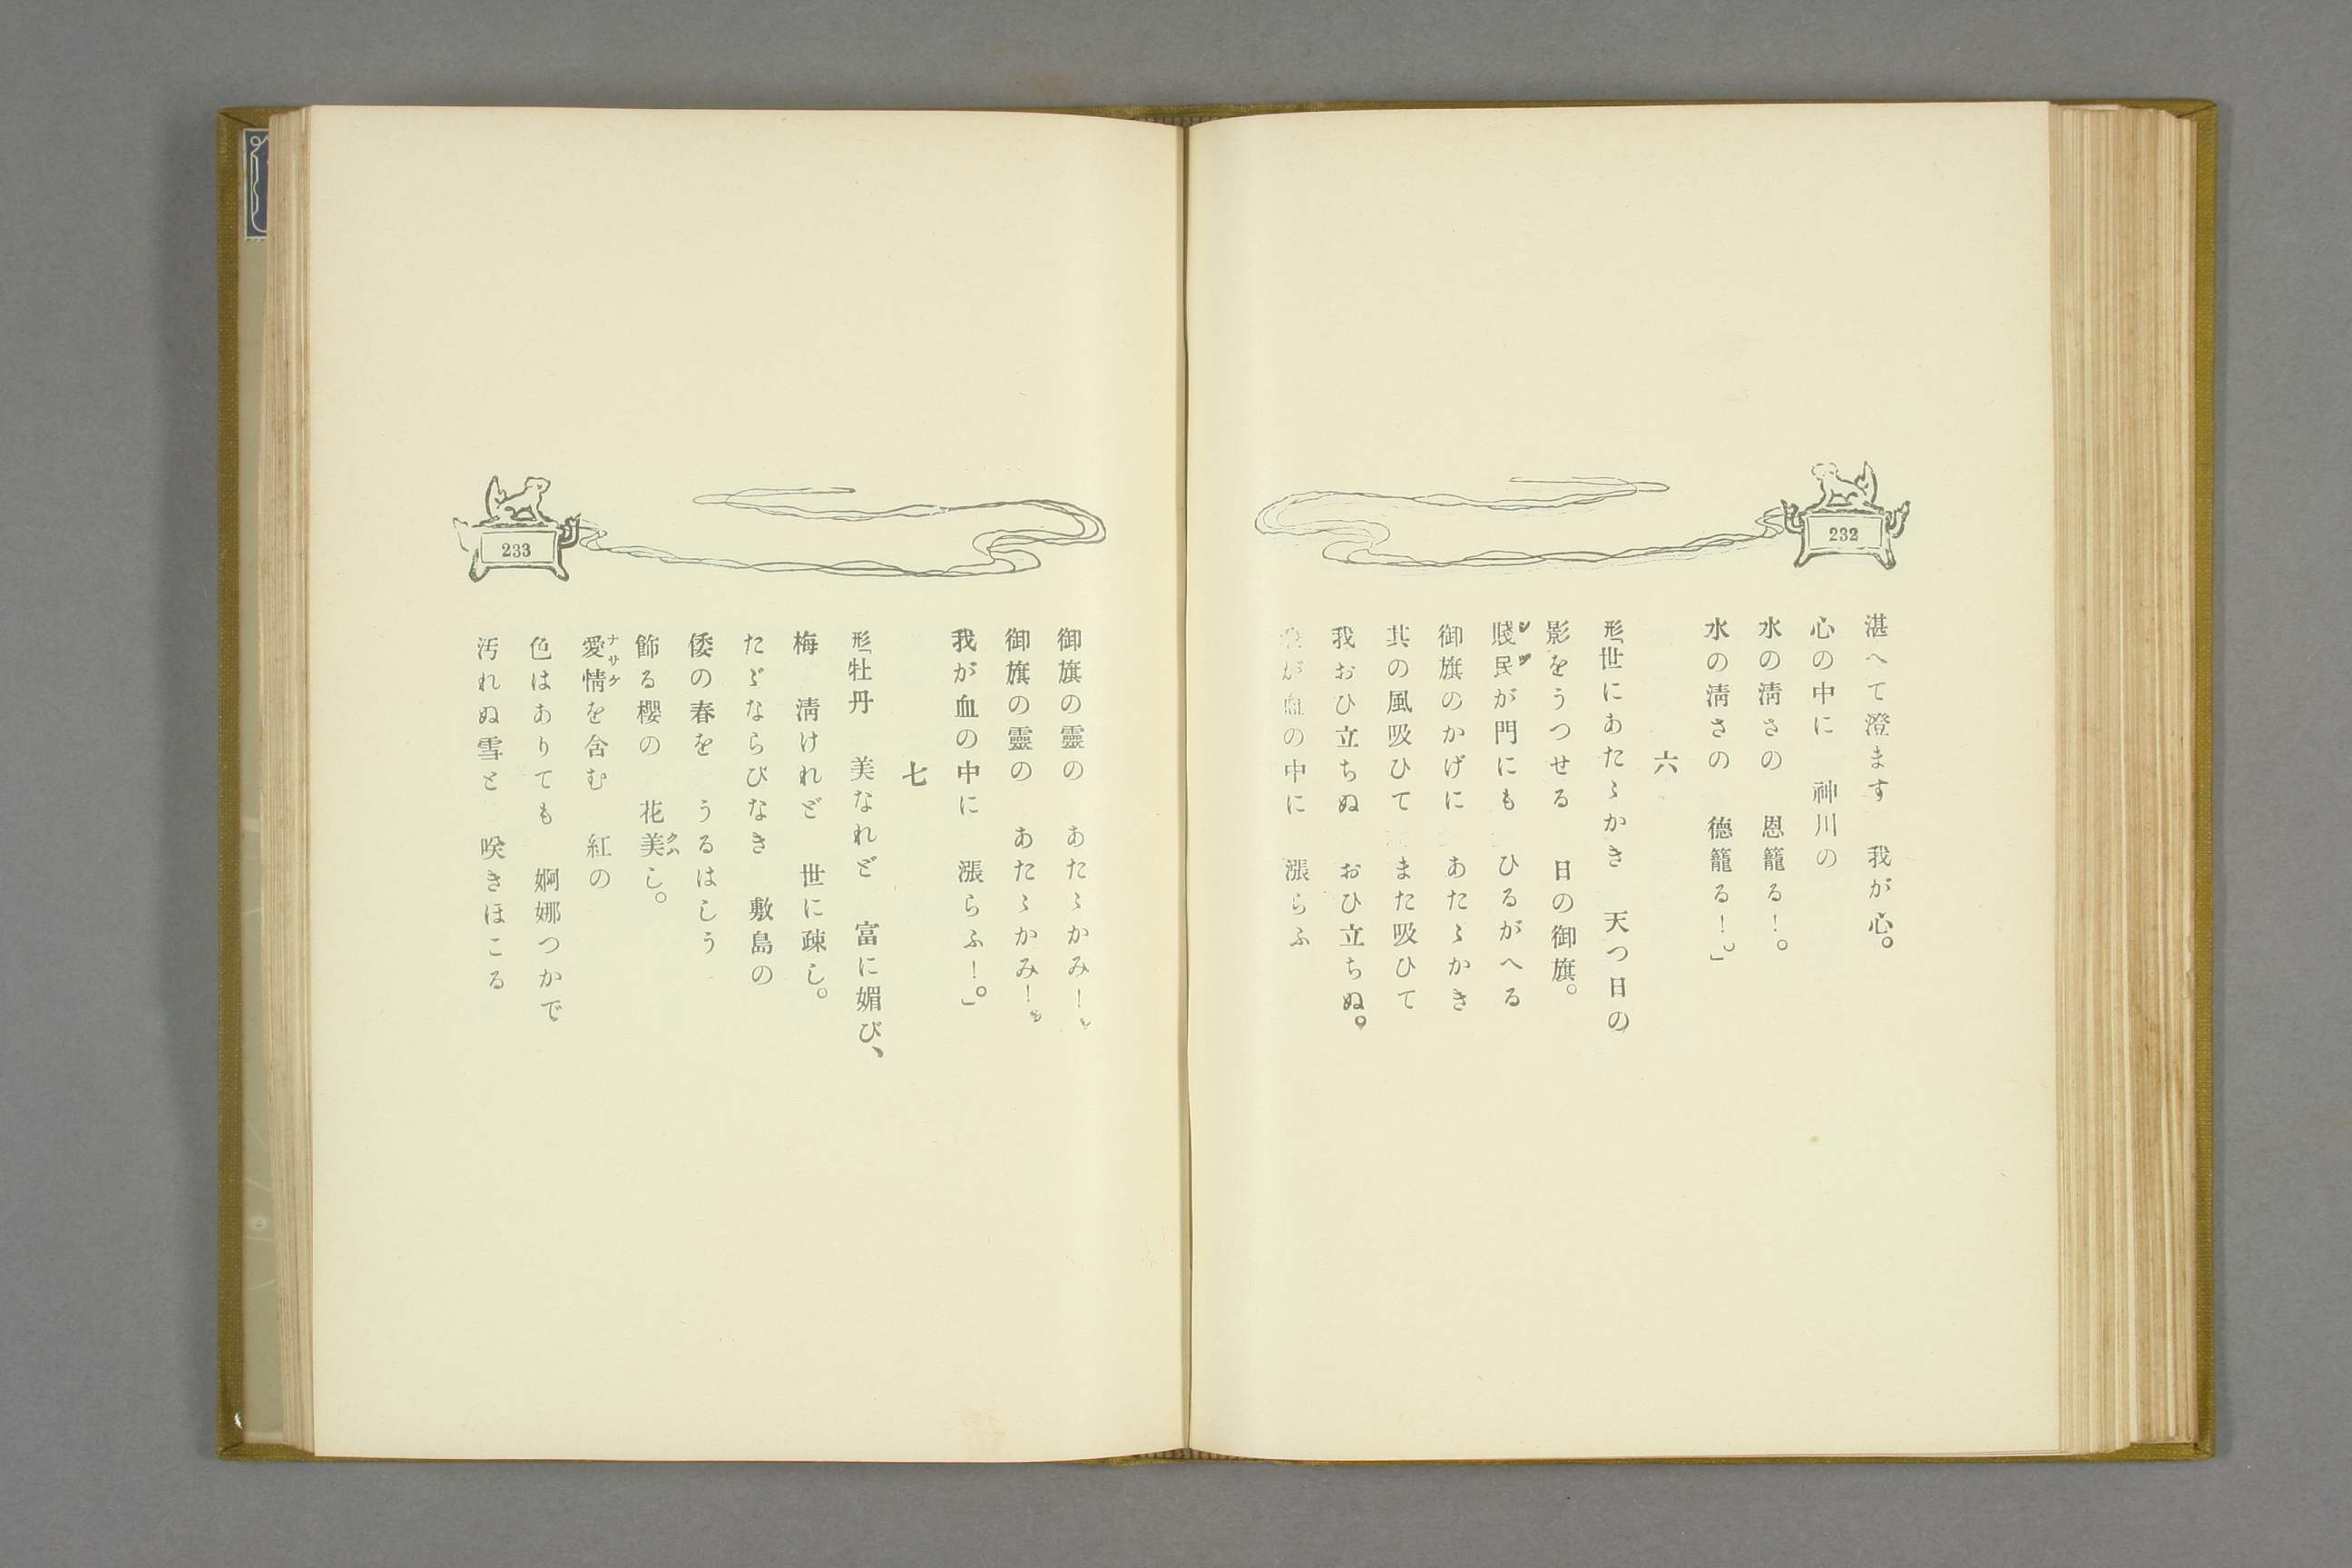 232
湛へて澄ます　我が心。
心の中に　神川の
水の淸さの　恩籠る！。
水の淸さの　德籠る！。」
六
形「世にあたゝかき　天つ日の
影をうつせる　日の御旗。
賤民が門にも　ひるがへる
御旗のかげに　あたゝかき
其の風吸ひて　また吸ひて
我おひ立ちぬ　おひ立ちぬ。
我が血の中に　漲らふ
233
御旗の靈の　あたゝかみ！。
御旗の靈の　あたゝかみ！。
我が血の中に　漲らふ！。」
七
形「牡丹　美なれど　富に媚び、
梅　淸けれど　世に疎し。
たゞならびなき　敷島の
倭の春を　うるはしう
飾る櫻の　花美し。
愛情を含む　紅の
ナサケ
色はありても　婀娜つかで
汚れぬ雪と　咲きほこる